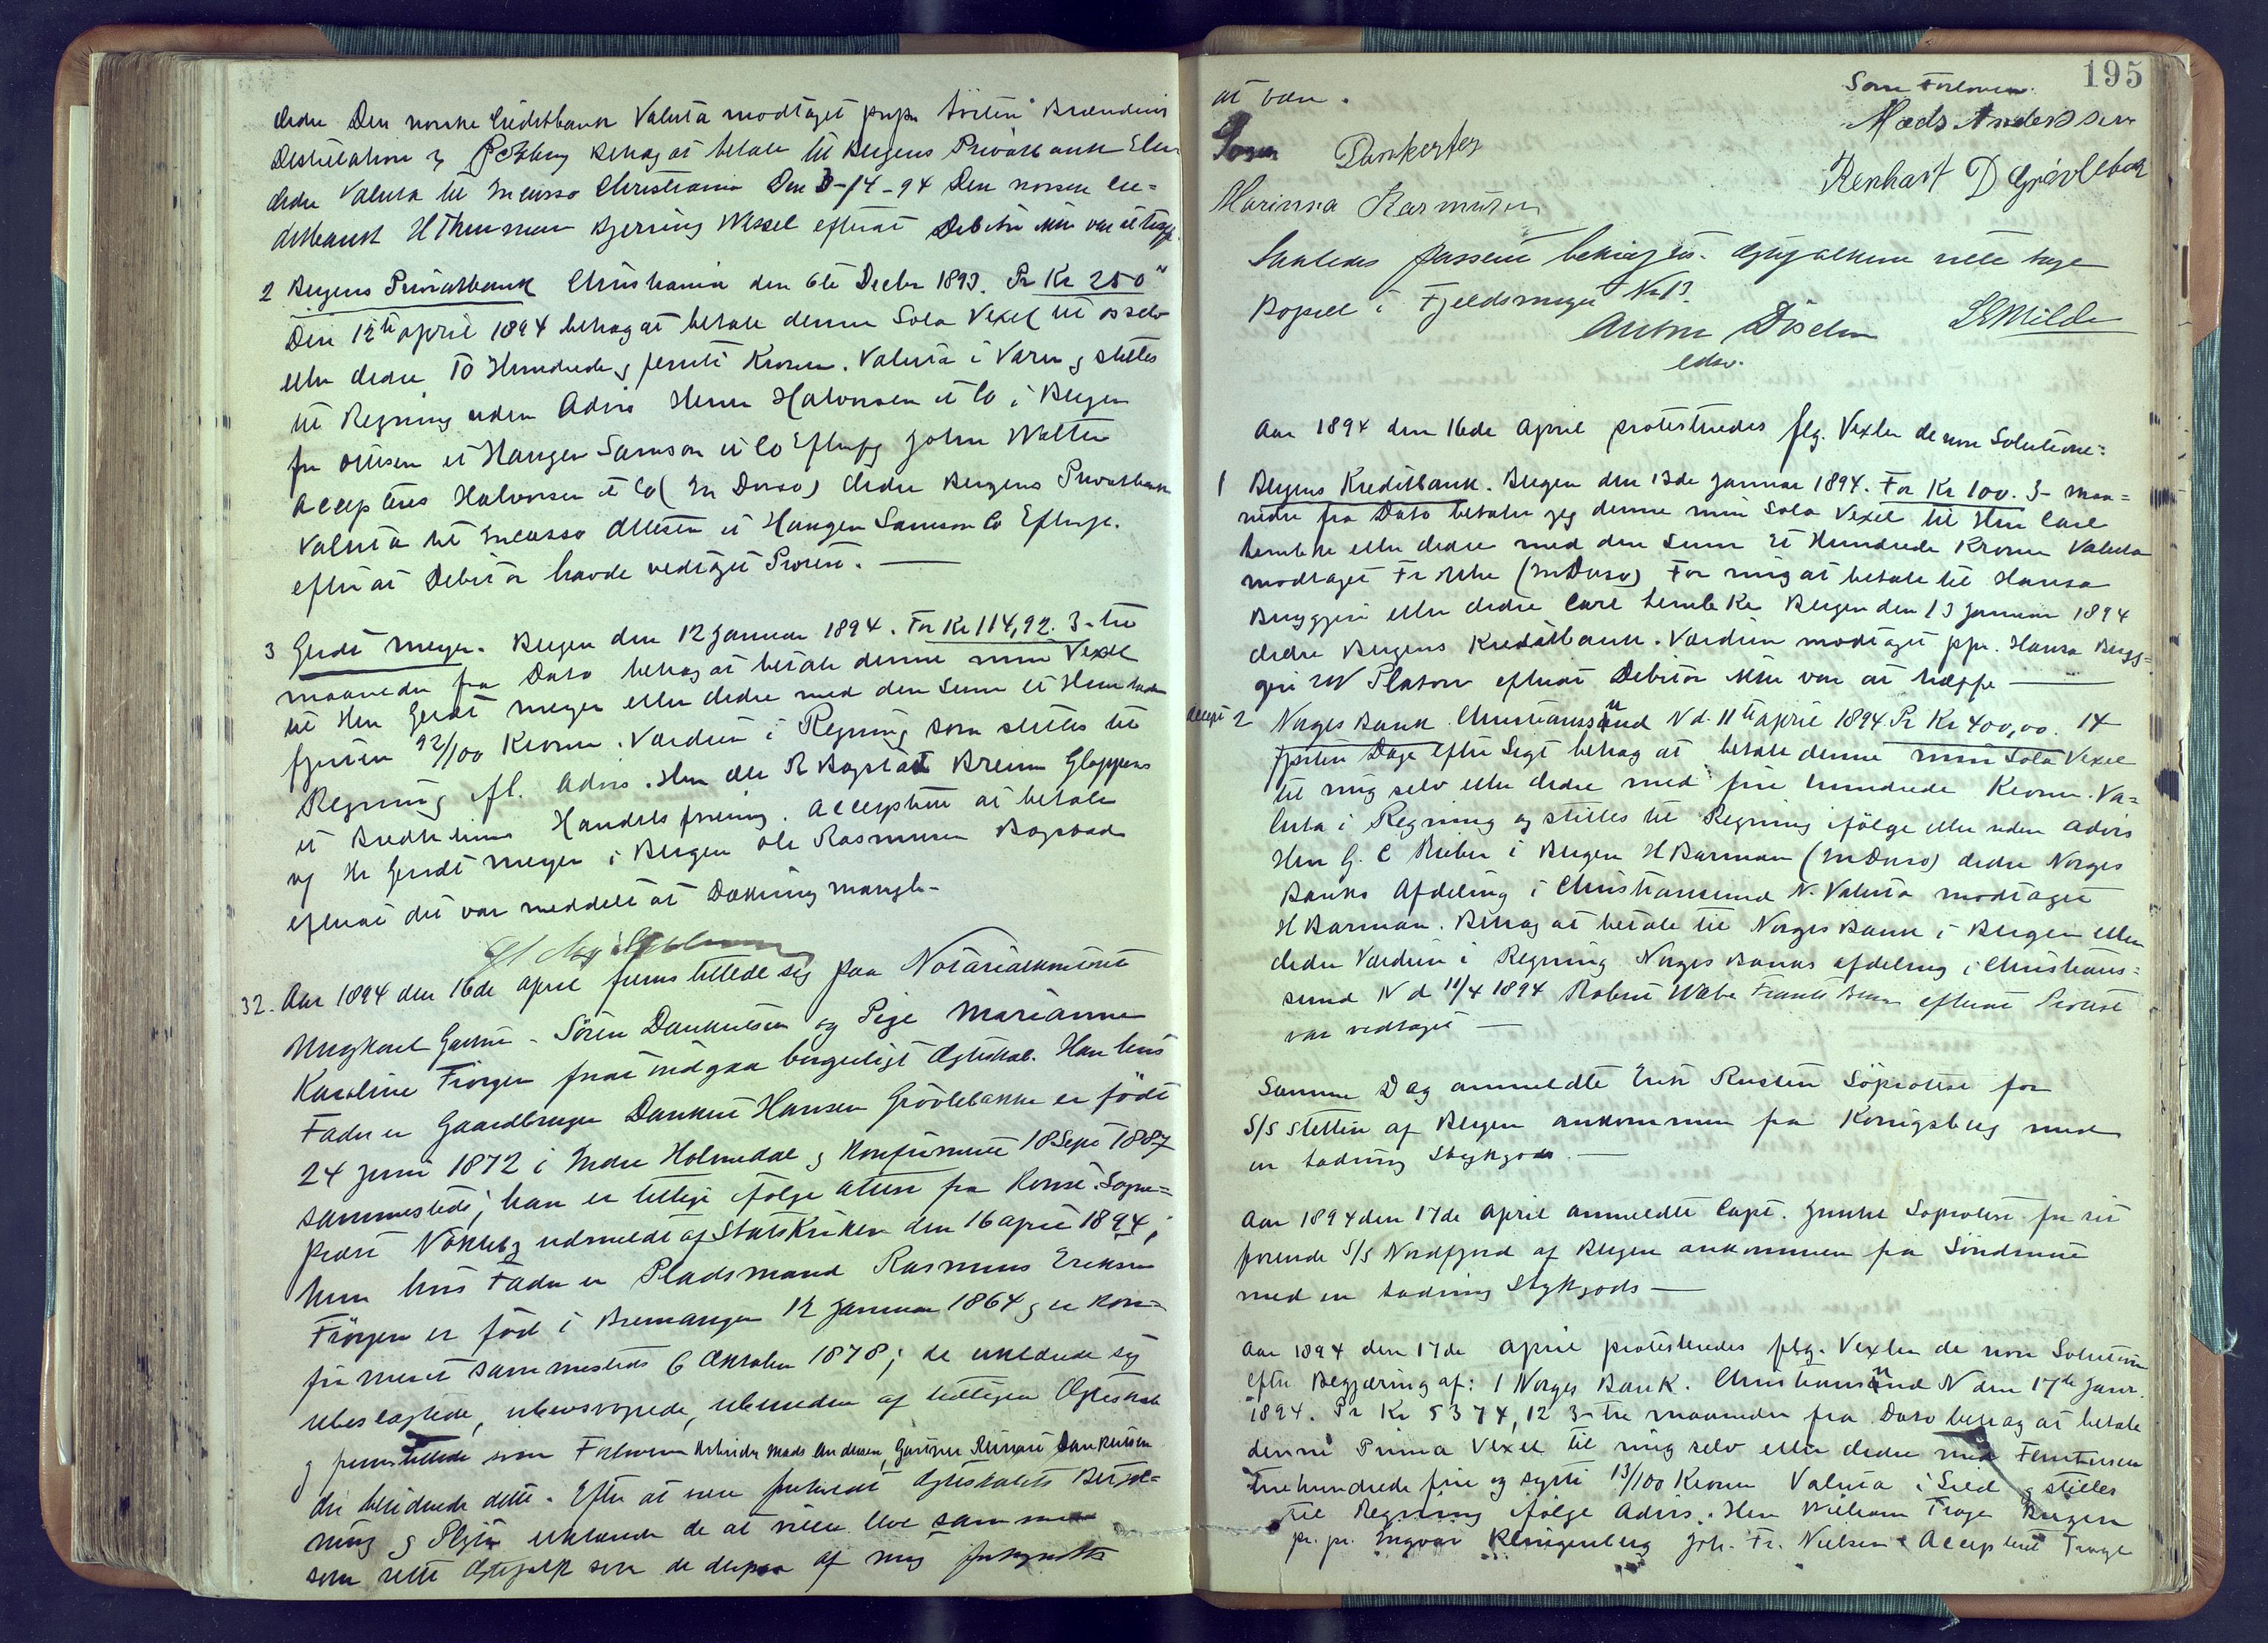 Ordre Den norske Creditbank Valuta modtaget prpr Brænderi
Destillation & behag at betale til Bergens Privatbank Eller
Ordre Valuta til Incasso Christiania Den -/4-94 Den norske Cre=
ditbank H Bjerring Wessel efterat Debitor ikke var at træffe.
2 Bergens Privatbank Christiania den 6te Decbr 1893. Pr Kr 250"
Den 12te april 1894 behag at betale denne Sola Vexel til os selv
eller Ordre To Hundrede og femti Kroner. Valuta i Varer og stilles
til Regning uden Advis Herrer Halvorsen et Co i Bergen
for Ottesen et Haugen Samson et Co Efterfg John Walter
Accepteres Halvorsen et Co (In Dorso) Ordre Bergens Privatbank
Valuta til Incasso Ottesen et Haugen Samson Co Efterf.
efter at Debitor havde vedtaget Protest. —
3 Gerdt Meyer. Bergen den 12 Januar 1894. For Kr 114,92. 3-tre
maaneder fra Dato behag at betale denne min Vexel
til Herr Gerdt Meyer eller Ordre med den Sum et Hundrede
fjorten 92/100 Kroner. Værdien i Regning som stilles til
Regning ifl. Advis. Herr Ole R Bogstad Breim Gloppens
et Bredheims Handelsforening. Accepteret at betale
af Hr Gerdt Meyer i Bergen Ole Rasmusen Bogstad
efterat det var meddelt at Dækning mangle-
32. Aar 1894 den 16de april fremstillede sig paa Notarialkontoret
Ungkarl Gartner - Sören Dankertsen og Pige Marianne
Karoline Frøyen for at indgaa borgerligt Ægteskab. Han hvis
Fader er Gaardbruger Dankert Hansen Grövlebakke er födt
24 Juni 1872 i Indre Holmedal og Konfirmeret 18 Sept 1887
sammesteds; han er tillige ifölge attest fra Konst. Sogne=
præst Nökleby udmeldt af Statskirken den 16 april 1894;
hun hvis Fader er Pladsmand Rasmus Eriksen
Fröyen er född i Bremanger 12 Januar 1864 og er Kon=
firmeret sammesteds 6 Oktober 1878; de erklærede sig
ubeslægtede, ubesvogrede, ubundne af tidligere Ægteskab
og fremstillede som Forlovere Arbeider Mads Andersen, Gartner Reinart Dankertsen
der bevidnede dette. Efter at være foreholdt Ægteskabets Betyd=
ning og Pligter erklærede de at ville leve sammen
som rette Ægtefolk som de derpaa af mig forkyndtes
195
at være.
Som Forlovere.
Mads Anderssen
Sören Dankertsen
Renhart D Grövlebak
Marianna Rasmusen
Saaledes passeret bekræftes. Ægtefolkene ville tage
Bopæl i Fjeldsmuget No 13.
Anton Döscher
LEMilde
edsv.
Aar 1894 den 16de April protesteredes flg. Vexler de non Solutione:
1 Bergens Kreditbank. Bergen den 13de Januar 1894. For Kr 100. 3- maa=
neder fra Dato betaler jeg denne min Sola Vexel til Herr Carl
Lembcke eller Ordre med den Sum Et Hundrede Kroner Valuta
modtaget Fr (In Dorso) For mig at betale til Hansa
Bryggeri eller Ordre Carl Lembcke Bergen den 13 Januar 1894
Ordre Bergens Kreditbank. Værdien modtaget ppr. Hansa Bryg=
geri W Platou efterat Debitor ikke var at træffe —
Accept 2 Norges Bank. Christianssund N d. 11te april 1894 Pr Kr 400,00. 14
fjorten Dage efter Sigt behag at betale denne min Sola Vexel
til mig selv eller Ordre med fire hundrede Kroner. Va=
luta i Regning og stilles til Regning ifölge eller uden Advis
Herr G. C Rieber i Bergen H Barman (In Dorso) Ordre Norges
Banks Afdeling i Christiansund N. Valuta modtaget
H Barman. Behag at betale til Norges Bank i Bergen eller
Ordre Værdien i Regning Norges Banks afdeling i Christians=
sund N d 11/4 1894 Robert efterat Protest
var vedtaget —
Samme Dag anmeldte Erik Rusten Söprotest for
S/S Stettin af Bergen ankommen fra Königsberg med
en Ladning Stykgods. —
Aar 1894 den 17de April anmeldte Capt. Söprotest for sit
förende S/S Nordfjord af Bergen ankommen fra Söndmøre
med en Ladning Stykgods —
Aar 1894 den 17de april protesteredes flg. Vexler de non Solutione
efter Begjæring af: 1 Norges Bank. Christianssund N den 17de Janr.
1894. Pr Kr 5374,12 3-tre maaneder fra Dato behag at betale
denne Prima Vexel til mig selv eller Ordre med Femtusen
trehundrede fire og sytti 13/100 Kroner Valuta i Sild og stilles
til Regning ifölge Advis. Herr William Troye Bergen
pr. pr. Ingvar Klingenberg Joh. Fr. Nielsen Accepteret Troye